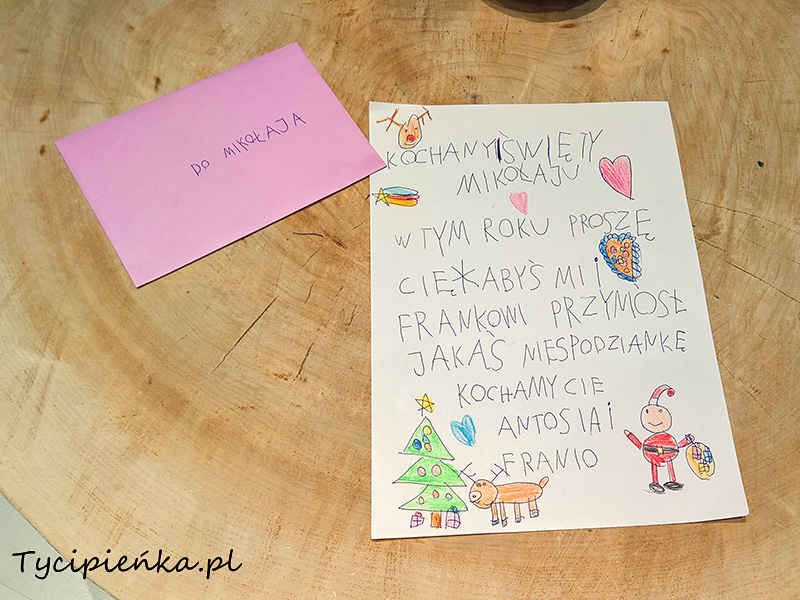 DO MIKOŁAJA
KOCHANY ŚWIĘTY
MIKOŁAJU
W TYM ROKU PROSZĘ
CIĘ ABYŚ MI i
FRANKOWI PRZYMOSŁ
JAKĄŚ MESPODZIANKĘ
KOCHAMY CIE
ANTOSIA i
FRANIO
Tycipieńka.pl